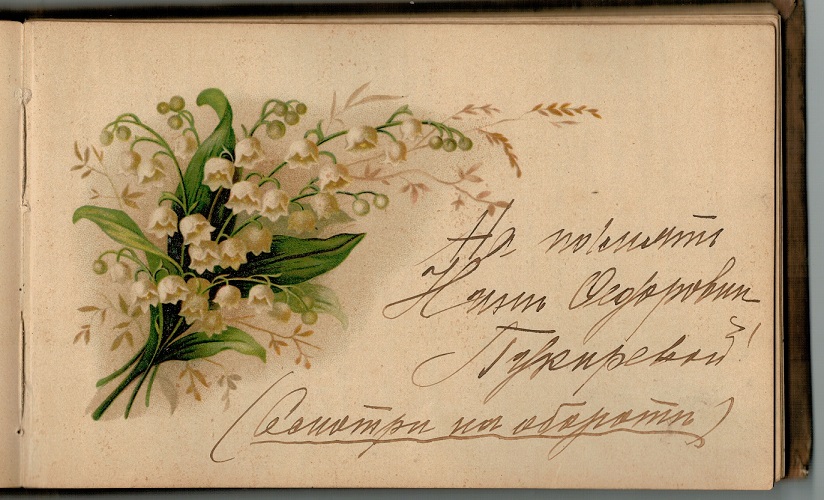 На память
Нинѣ Ѳедоровнѣ
Пукиревой!
(Смотри на оборотѣ)